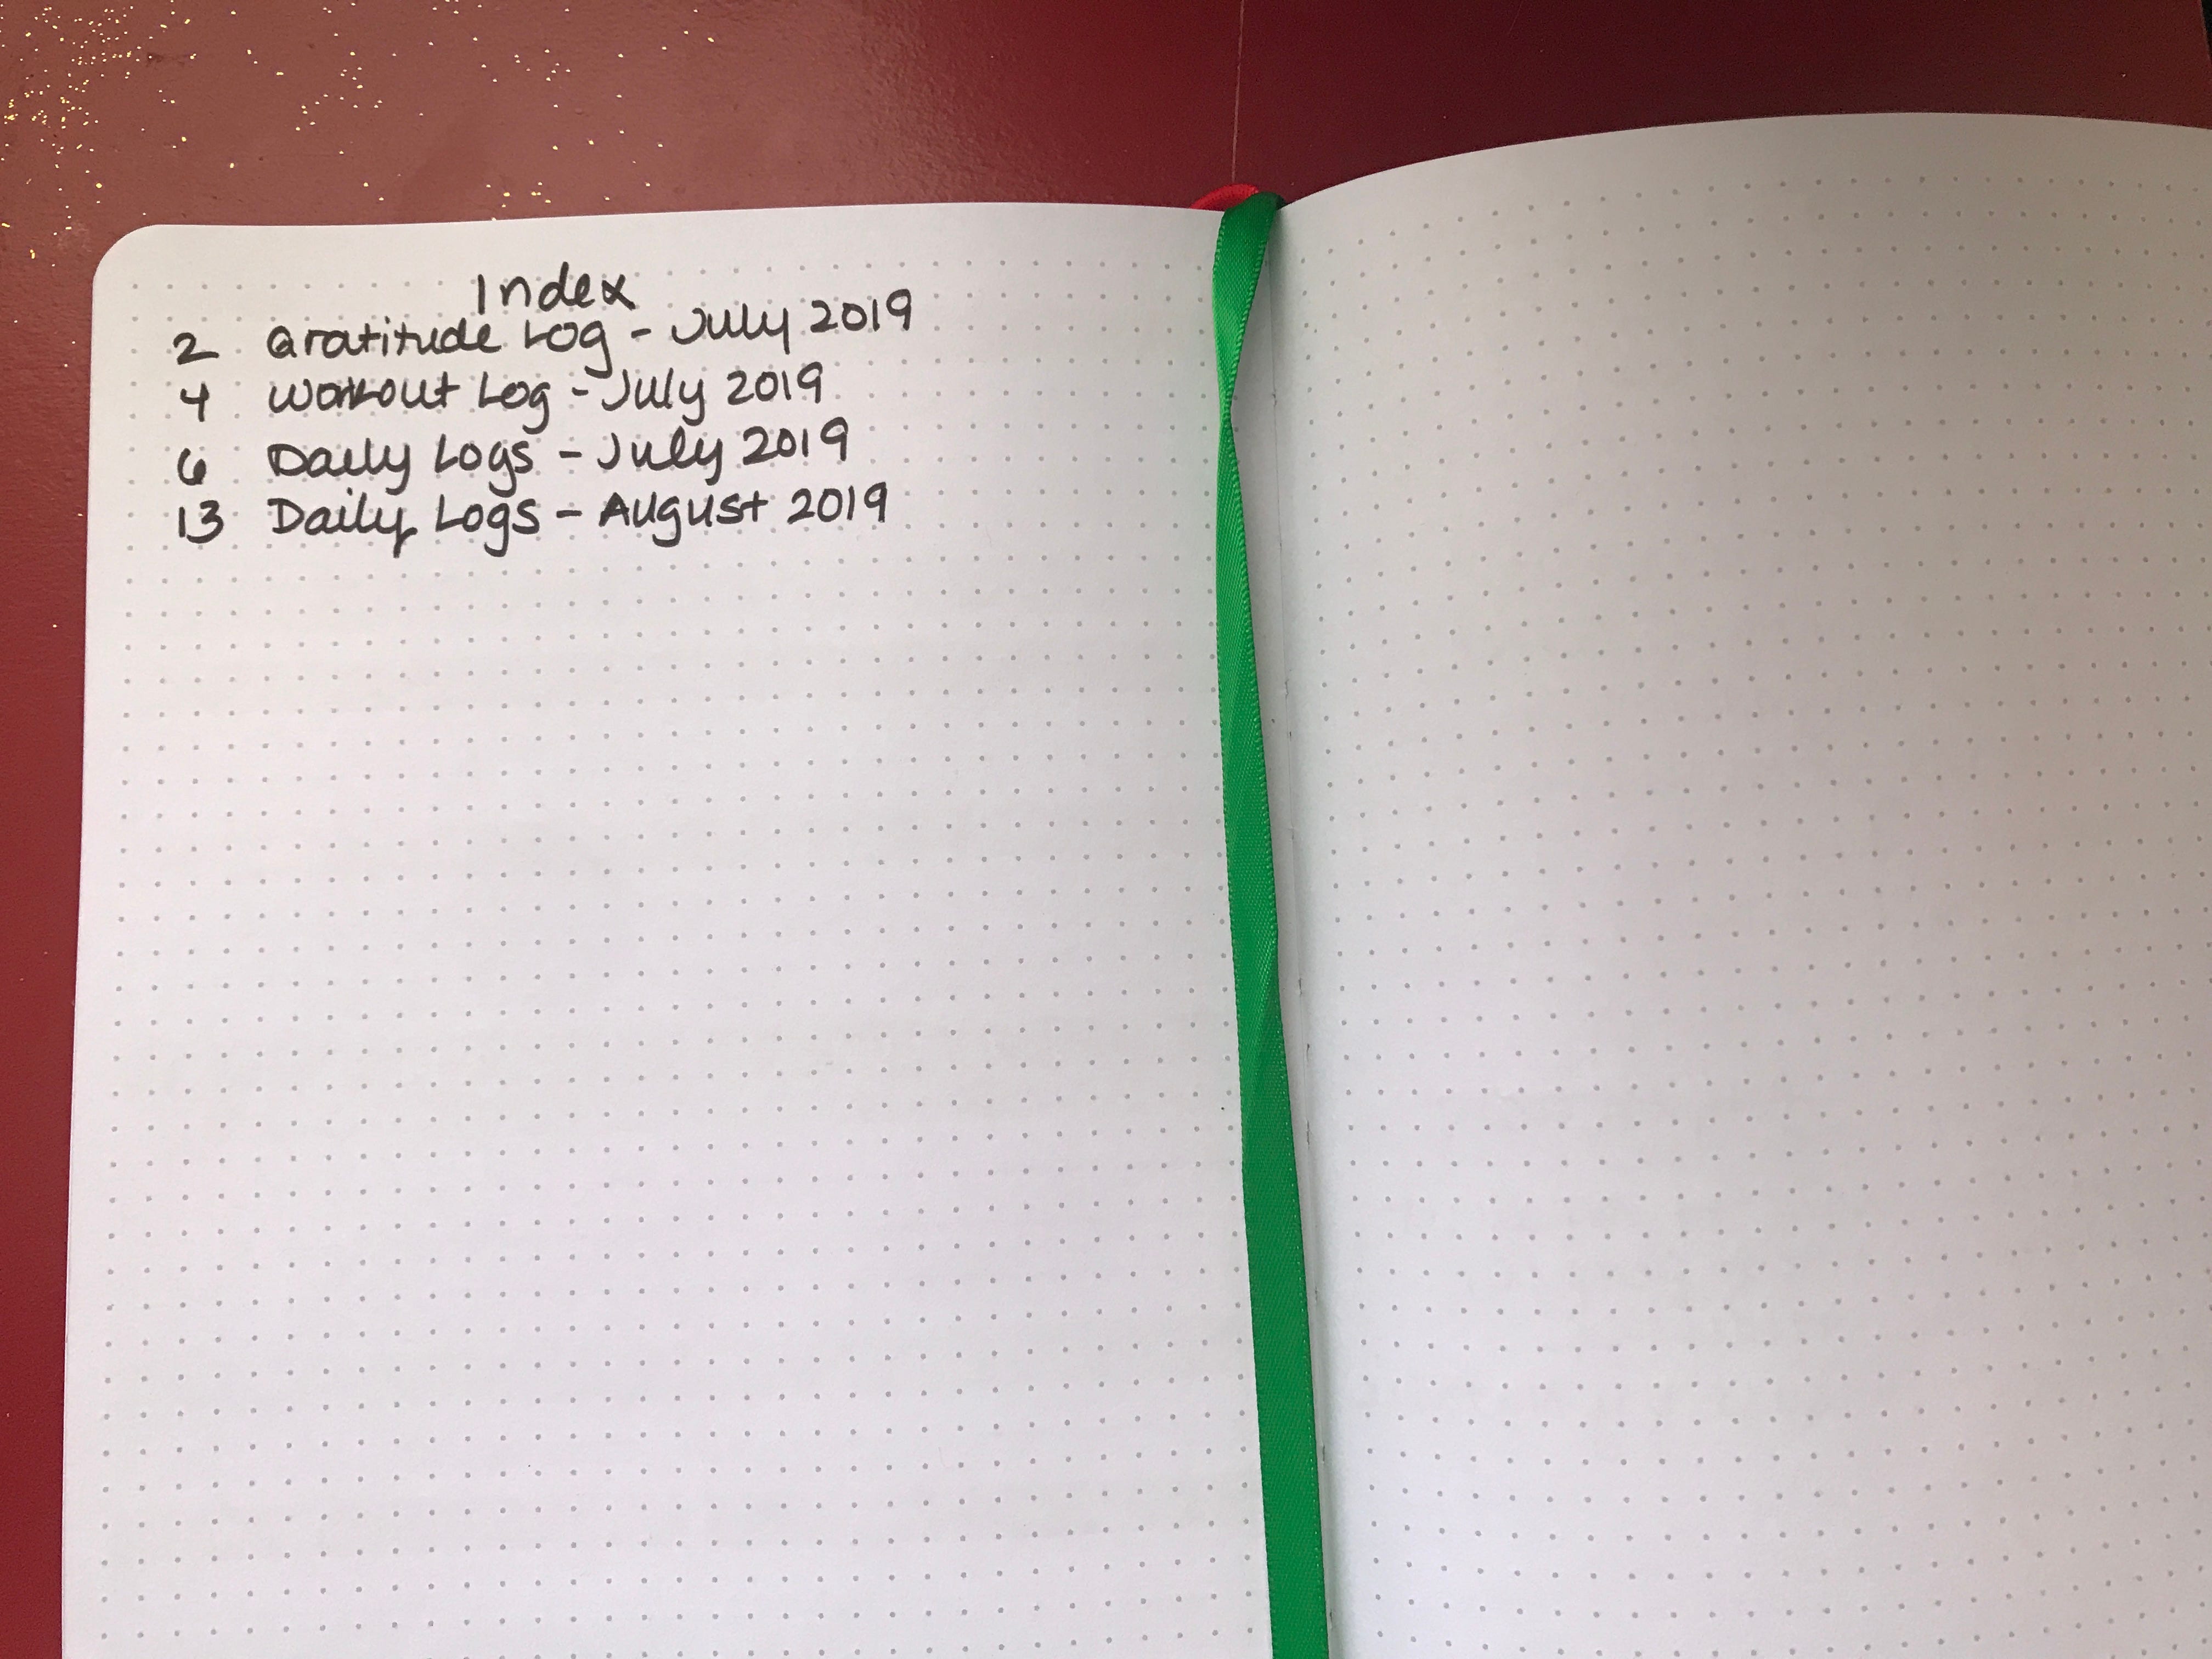 Index
2 Gratitude Log - July 2019
4 Workout Log - July 2019
6 Daily Logs - July 2019
13 Daily Logs - August 2019